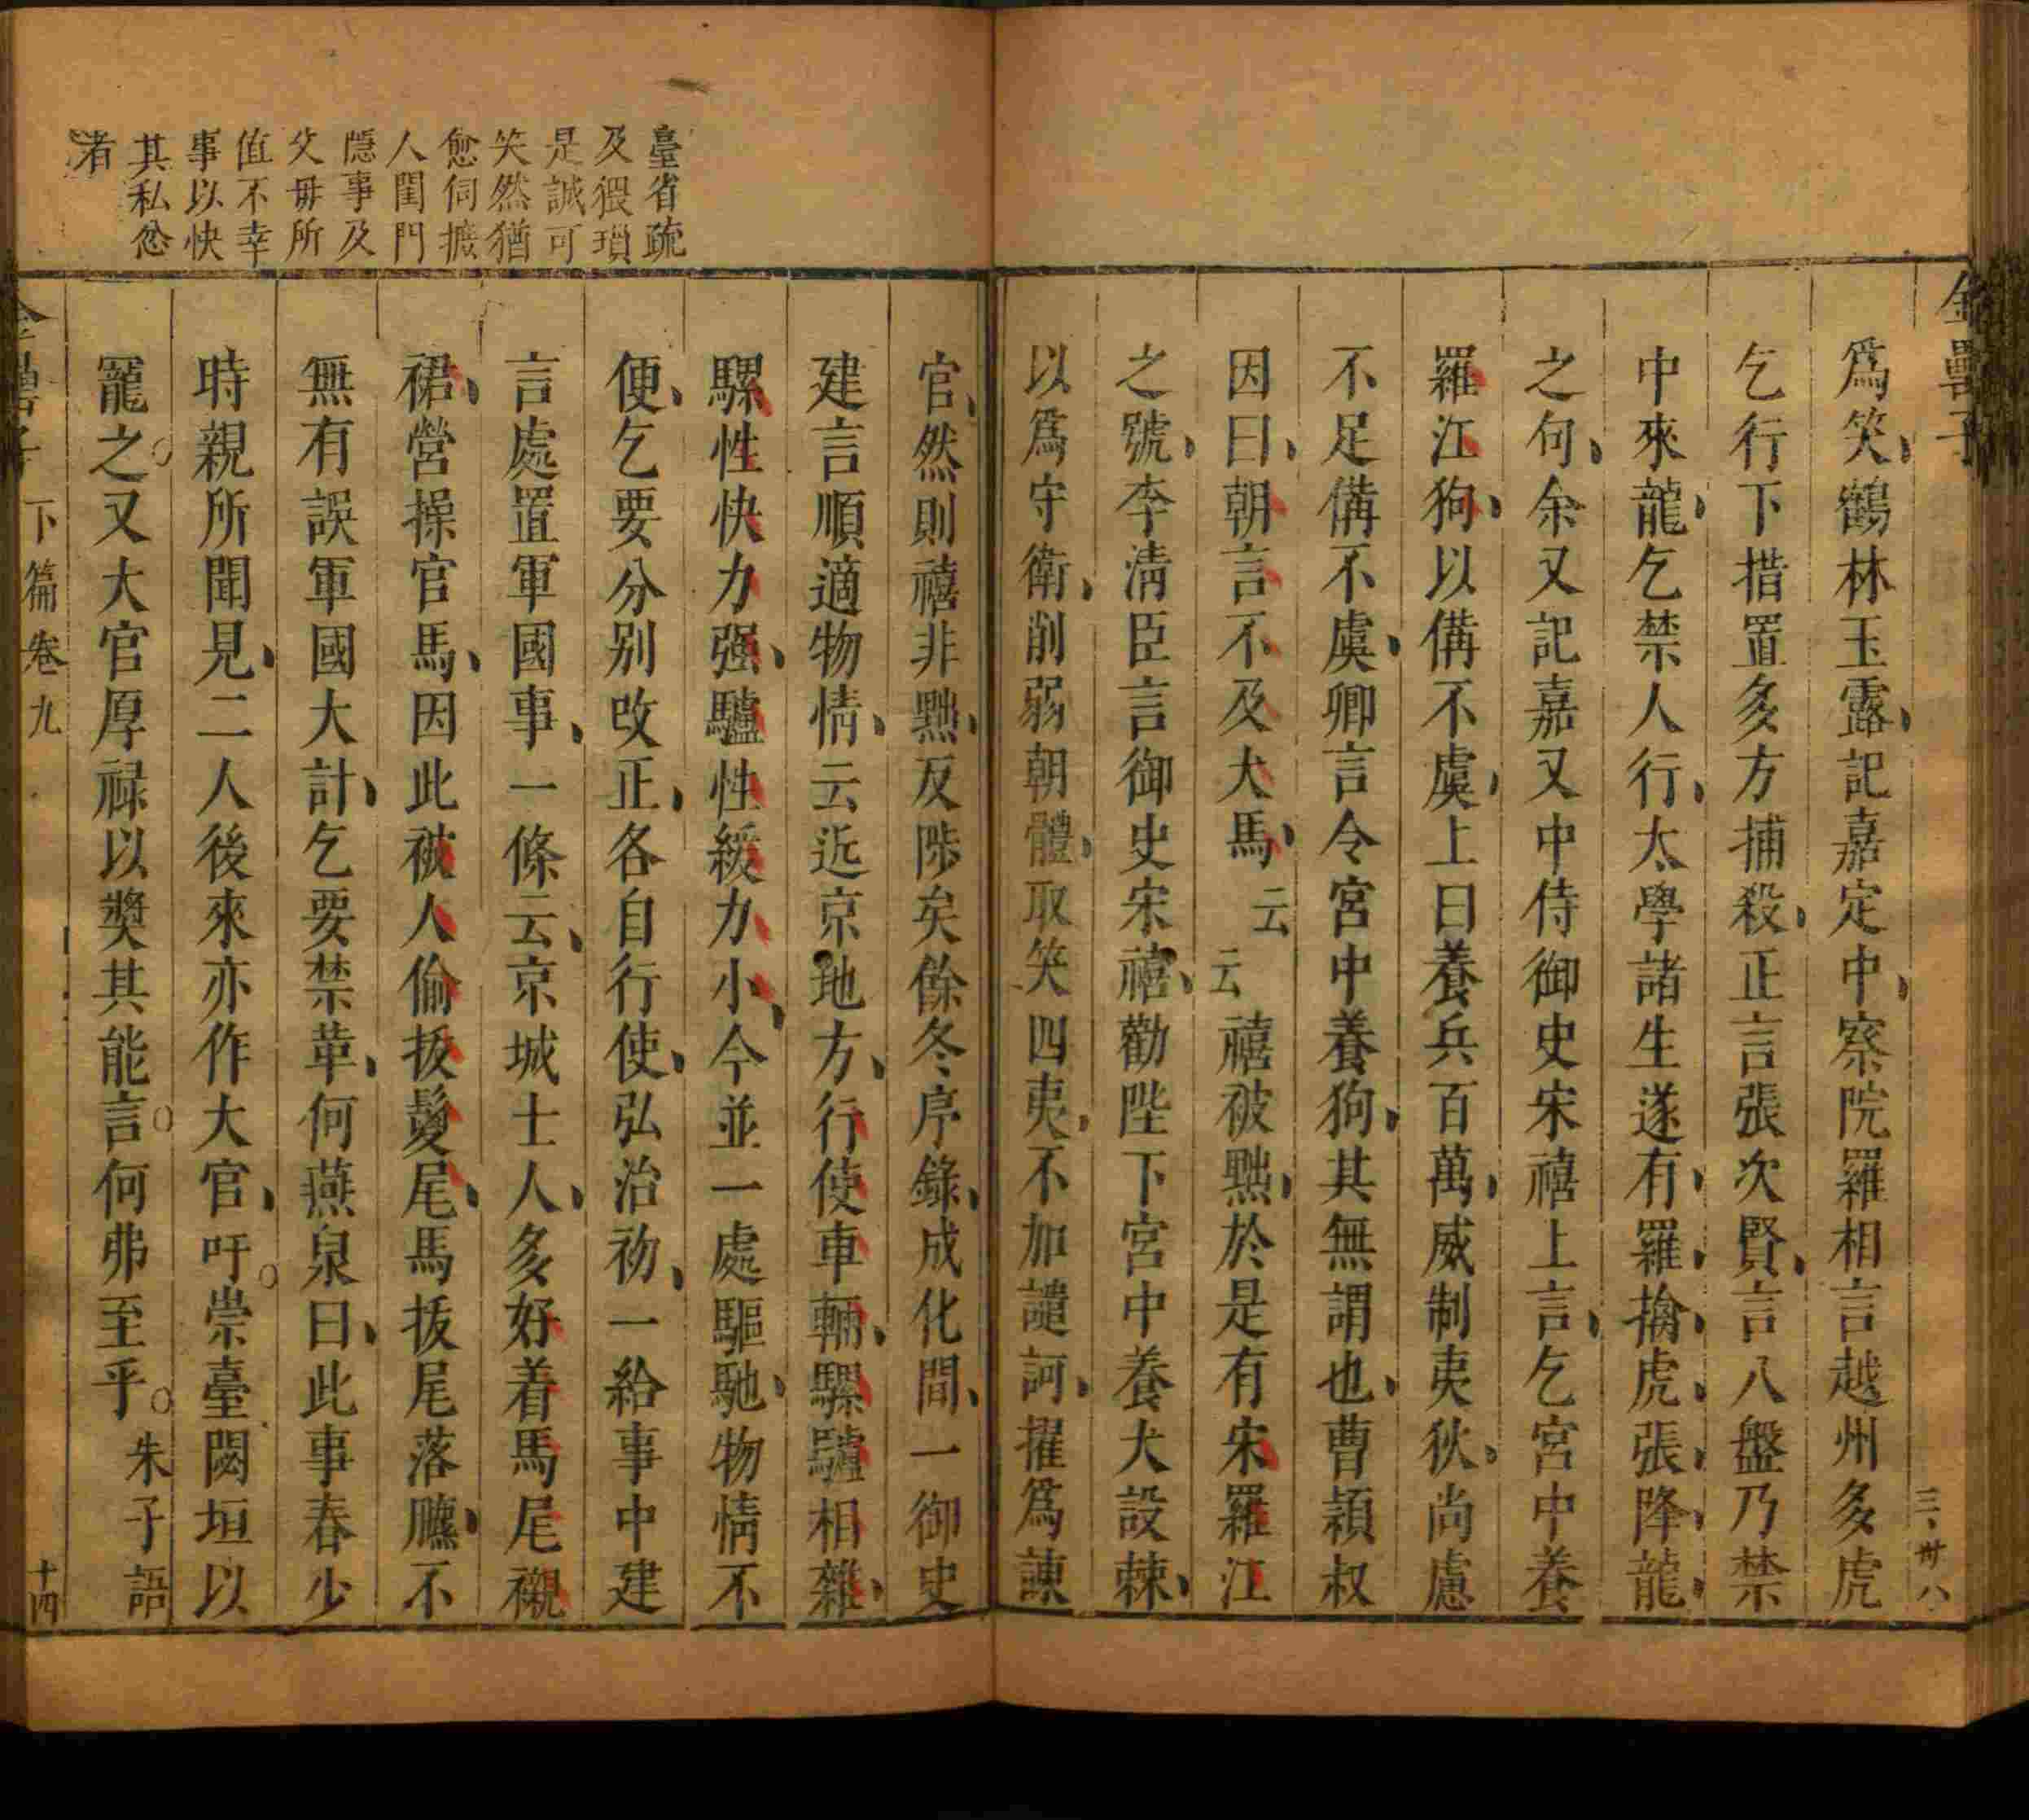 金罍子
三卅八
爲笑鶴林玉露記嘉定中察院羅相言越州多虎
乞行下措置多方捕殺正言張次賢言八盤乃禁
中來龍乞禁人行太學諸生遂有羅擒虎張降龍
之句余又記嘉又中侍御史宋禧上言乞宮中養
羅江狗以備不虞上曰養兵百萬威制夷狄尚慮
不足備不虞卿言令宮中養狗其無謂也曹穎叔
因曰朝言不及犬馬云云禧被黜於是有宋羅江
之號李淸臣言御史宋禧勸陛下宮中養犬設棘
以爲守衛削弱朝體取笑四夷不加譴訶擢爲諫
官然則禧非黜反陟矣餘冬序錄成化間一御史
建言順適物情云近京地方行使車輛騾驢相雜
騾性快力强驢性緩力小今並一處驅馳物情不
便乞要分别改正各自行使弘治初一給事中建
言處置軍國事一條云京城士人多好着馬尾襯
裙營操官馬因此被人偷拔鬃尾馬拔尾落膘不
無有誤軍國大計乞要禁革何燕泉曰此事春少
時親所聞見二人後來亦作大官吁崇臺閎垣以
寵之又大官厚祿以奬其能言何弗至乎朱子語
臺省疏
及猥瑣
是誠可
笑然猶
愈伺摭
人閨門
隱事及
父毋所
值不幸
事以快
其私忿
者
下篇卷九
十四